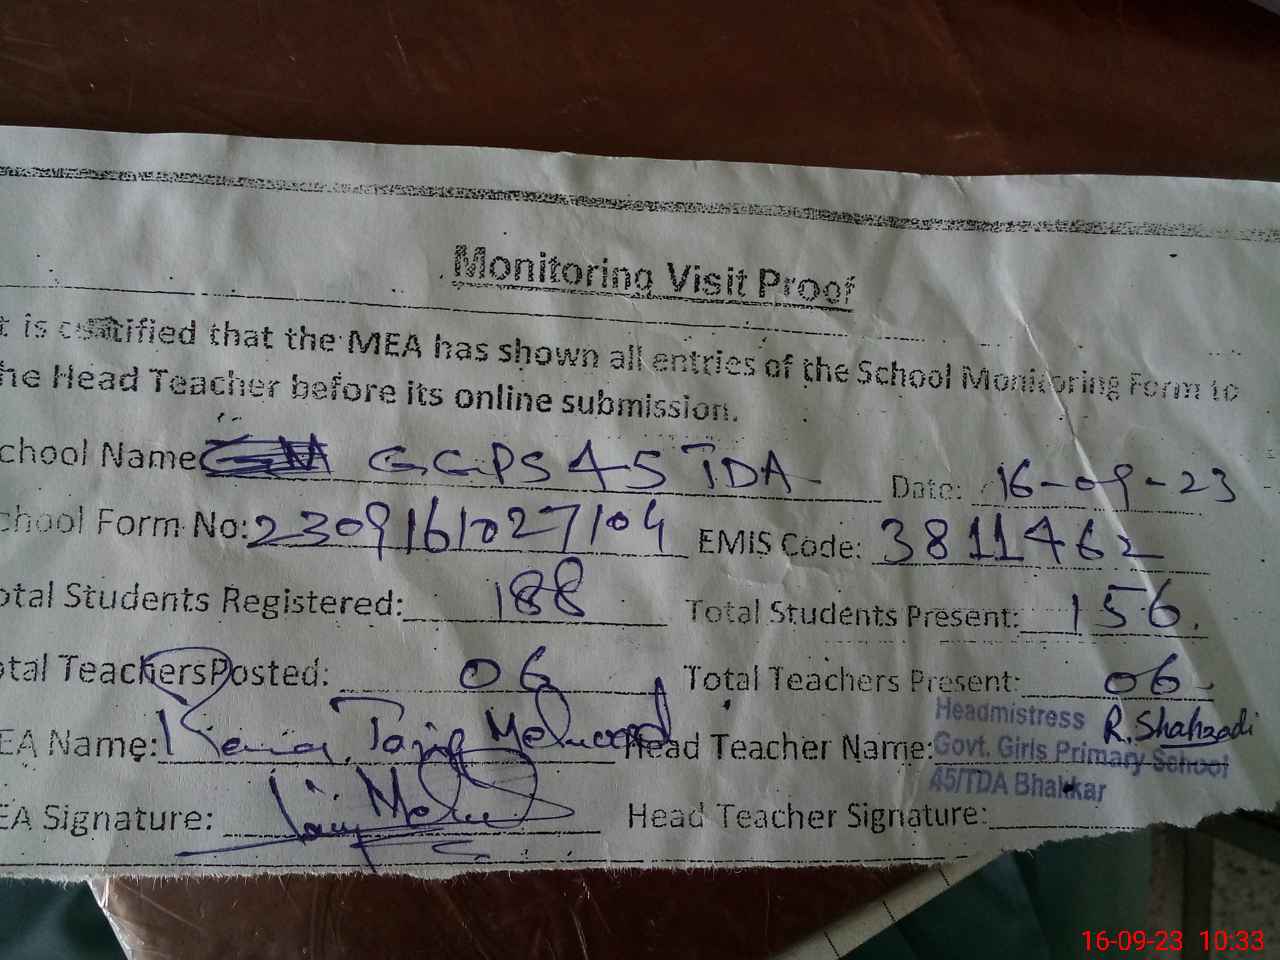 Monitoring Visit Proof
t is certified that the MEA has shown all entries of the School Monitoring Form to
he Head Teacher before its online submission.
chool Name GGPS 45 TDA Date: 16-09-23
chool Form No: 2309161027104 EMIS Code: 3811462
otal Students Registered: 188 Total Students Present: 156.
otal Teachers Posted: 06 Total Teachers Present: 06
EA Name: Mehmood Head Teacher Name: R. Shahzadi
Headmistress
Govt. Girls Primary School
45/TDA Bhakkar
EA Signature: Head Teacher Signature:
16-09-23 10:33